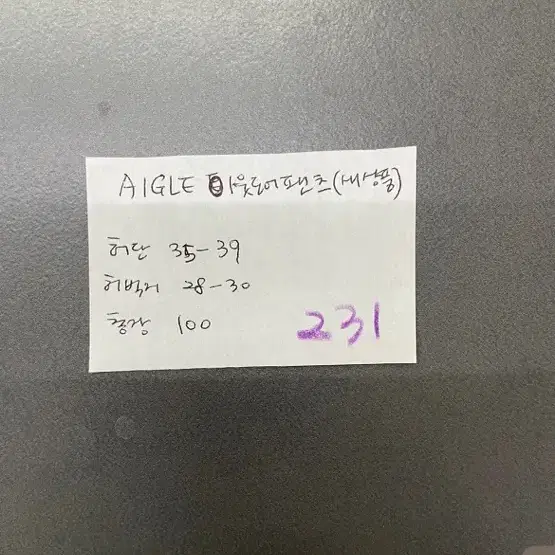 AIGLE 아웃도어팬츠(새상품)
허단 35-39
허벅지 28-30
총장 100
231